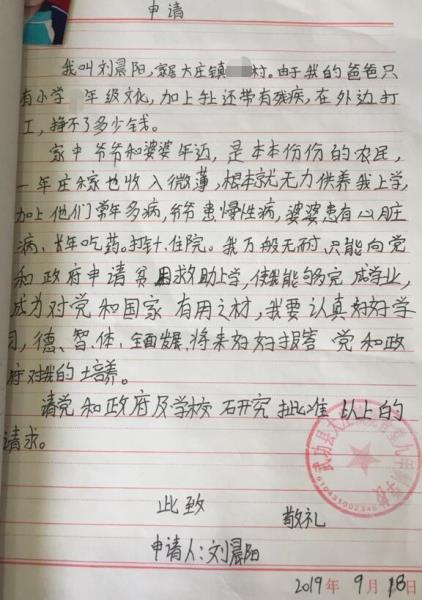 申请
我叫刘晨阳,家居大庄镇村。由于我的爸爸只
有小学年级文化,加上还带有残疾,在外边打
工,挣不了多少钱。
家中爷爷和婆婆年迈,是本本份份的农民,
一年庄稼也收入微薄,根本就无力供养我上学,
加上他们常年多病,爷爷患慢性病,婆婆患有心脏
病、长年吃药。打针、住院。我万般无奈,只能向党
和政府申请贫困救助上学,使我能够完成学业,
成为对党和国家有用之材,我要认真好好学
习,德、智、体、全面发展,将来好好报答党和政
府对我的培养。
请党和政府及学校研究批准以上的
请求。
此致
敬礼
申请人:刘晨阳
2019年9月18日
武功县大庄
6104310023